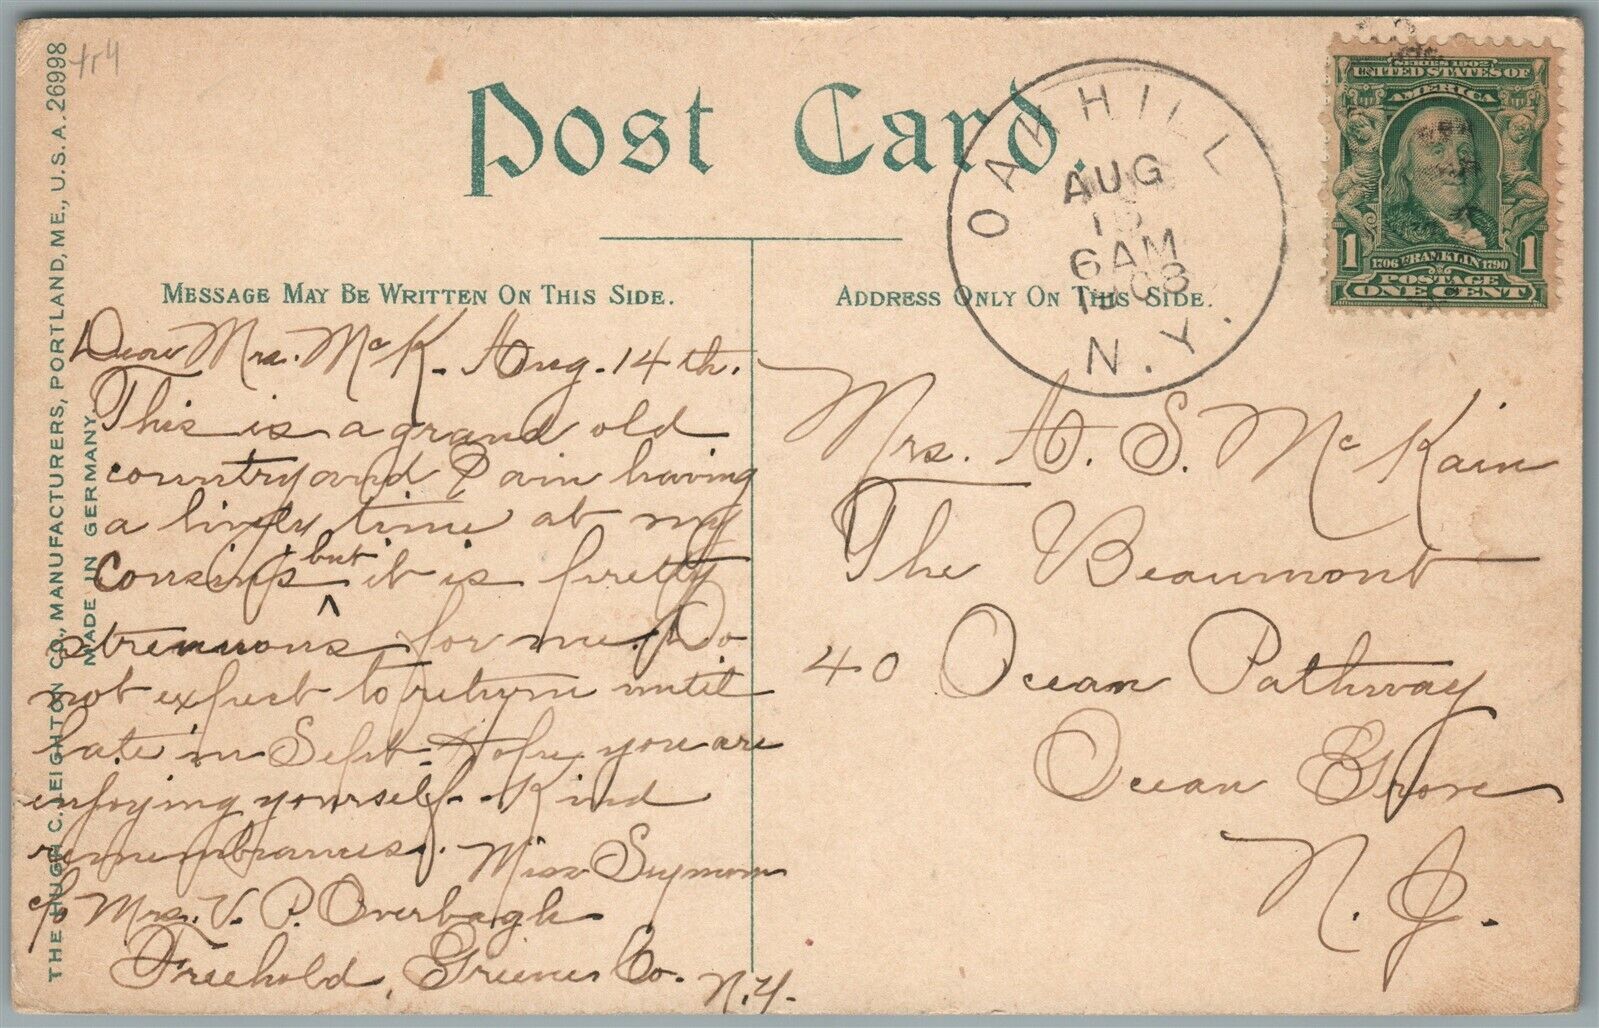 Post Card.
MESSAGE MAY BE WRITTEN ON THIS SIDE.
ADDRESS ONLY ON THIS SIDE.
THE HUGH C. LEIGHTON CO., MANUFACTURERS, PORTLAND, ME., U.S.A. 26998
MADE IN GERMANY.
OAK HILL
AUG
15
6AM
1908
N.Y.
SERIES 1902
UNITED STATES OF
AMERICA
1706 FRANKLIN 1790
1 1
POSTAGE
ONE CENT
Dear Mrs. McK. Aug. 14th.
This is a grand old
country and I am having
a lively time at my
Cousin's but it is pretty
strenuous for me. Do
not expect to return until
late in Sept. Hope you are
enjoying yourself. Kind
remembrances. Miss Seymour
c/o Mrs. V. P. Overbagh
Freehold, Greene Co. N.Y.
Mrs. A. S. McKain
The Beaumont
40 Ocean Pathway
Ocean Grove
N. J.